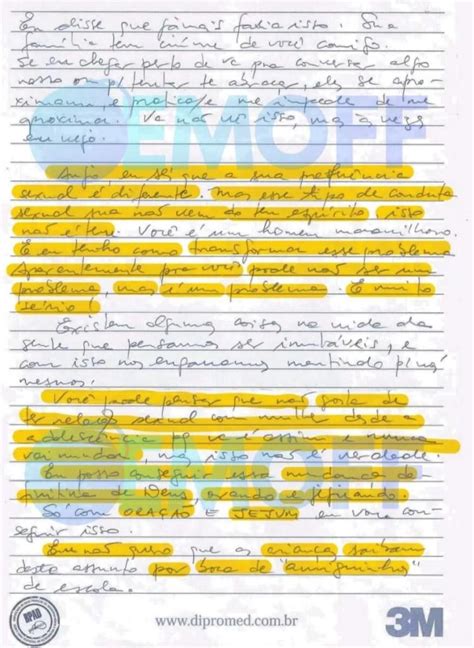 Eu disse que jamais faria isto. Sua
família tem ciúme de você comigo.
Se eu chegar perto de vc pra conversar algo
nosso ou p/ tentar te abraçar, eles se apro-
ximam, e me impede de me
aproximar. Vc não vê isso, mas às vezes
eu vejo.
EMOFF
Anjo eu sei que a sua preferência
sexual é diferente. Mas esse tipo de conduta
sexual sua não vem do teu espírito isto
não é teu. Você é um homem maravilhoso.
E eu tenho como transformar esse problema
Aparentemente pra você pode não ser um
problema, mas é um problema. É muito
sério!
Existem algumas coisas na vida da
gente que pensamos ser imutáveis, e
com isso nos enganamos mentindo p/ nós
mesmos.
Você pode pensar que não gosta de
ter relação sexual com mulher desde a
adolescência pq vc é assim e nunca
vai mudar, mas isso não é verdade.
Eu posso conseguir essa mudança de-
finitiva de Deus, orando e jejuando.
EMOFF
Só com ORAÇÃO E JEJUM eu vou con-
seguir isso.
Eu não quero que as crianças saibam
deste assunto por boca de "amiguinhos"
de escola.
DPAD
www.dipromed.com.br
3M